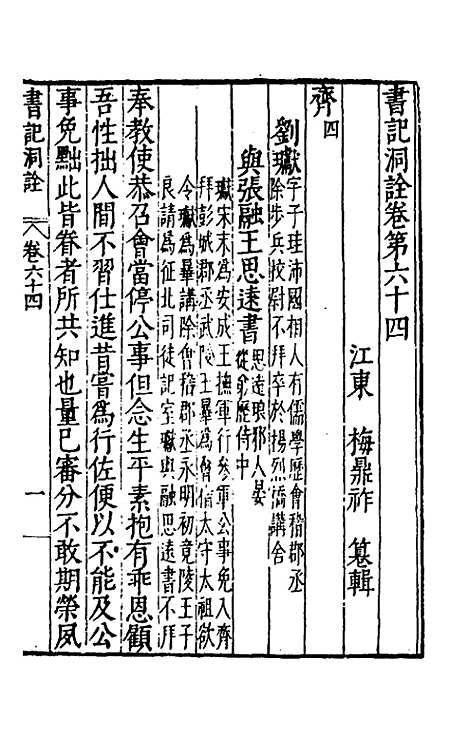 書記洞詮卷第六十四
江東 梅鼎祚 纂輯
齊四
劉瓛字子珪沛國相人有儒學歷會稽郡丞
除步兵校尉不拜卒於揚烈橋講舍
與張融王思遠書思遠琅邪人晏
從弟歷侍中
瓛宋末為安成王撫軍行參軍公事免入齊
拜彭城郡丞武陵王曅為會稽太守太祖欲
令瓛為曅講除會稽郡丞永明初竟陵王子
良請為征北司徒記室瓛與融思遠書不拜
奉教使恭召會當停公事但念生平素抱有乖恩顧
吾性拙人間不習仕進昔嘗爲行佐便以不能及公
事免黜此皆眷者所共知也量己審分不敢期榮夙
書記洞詮
卷六十四
一